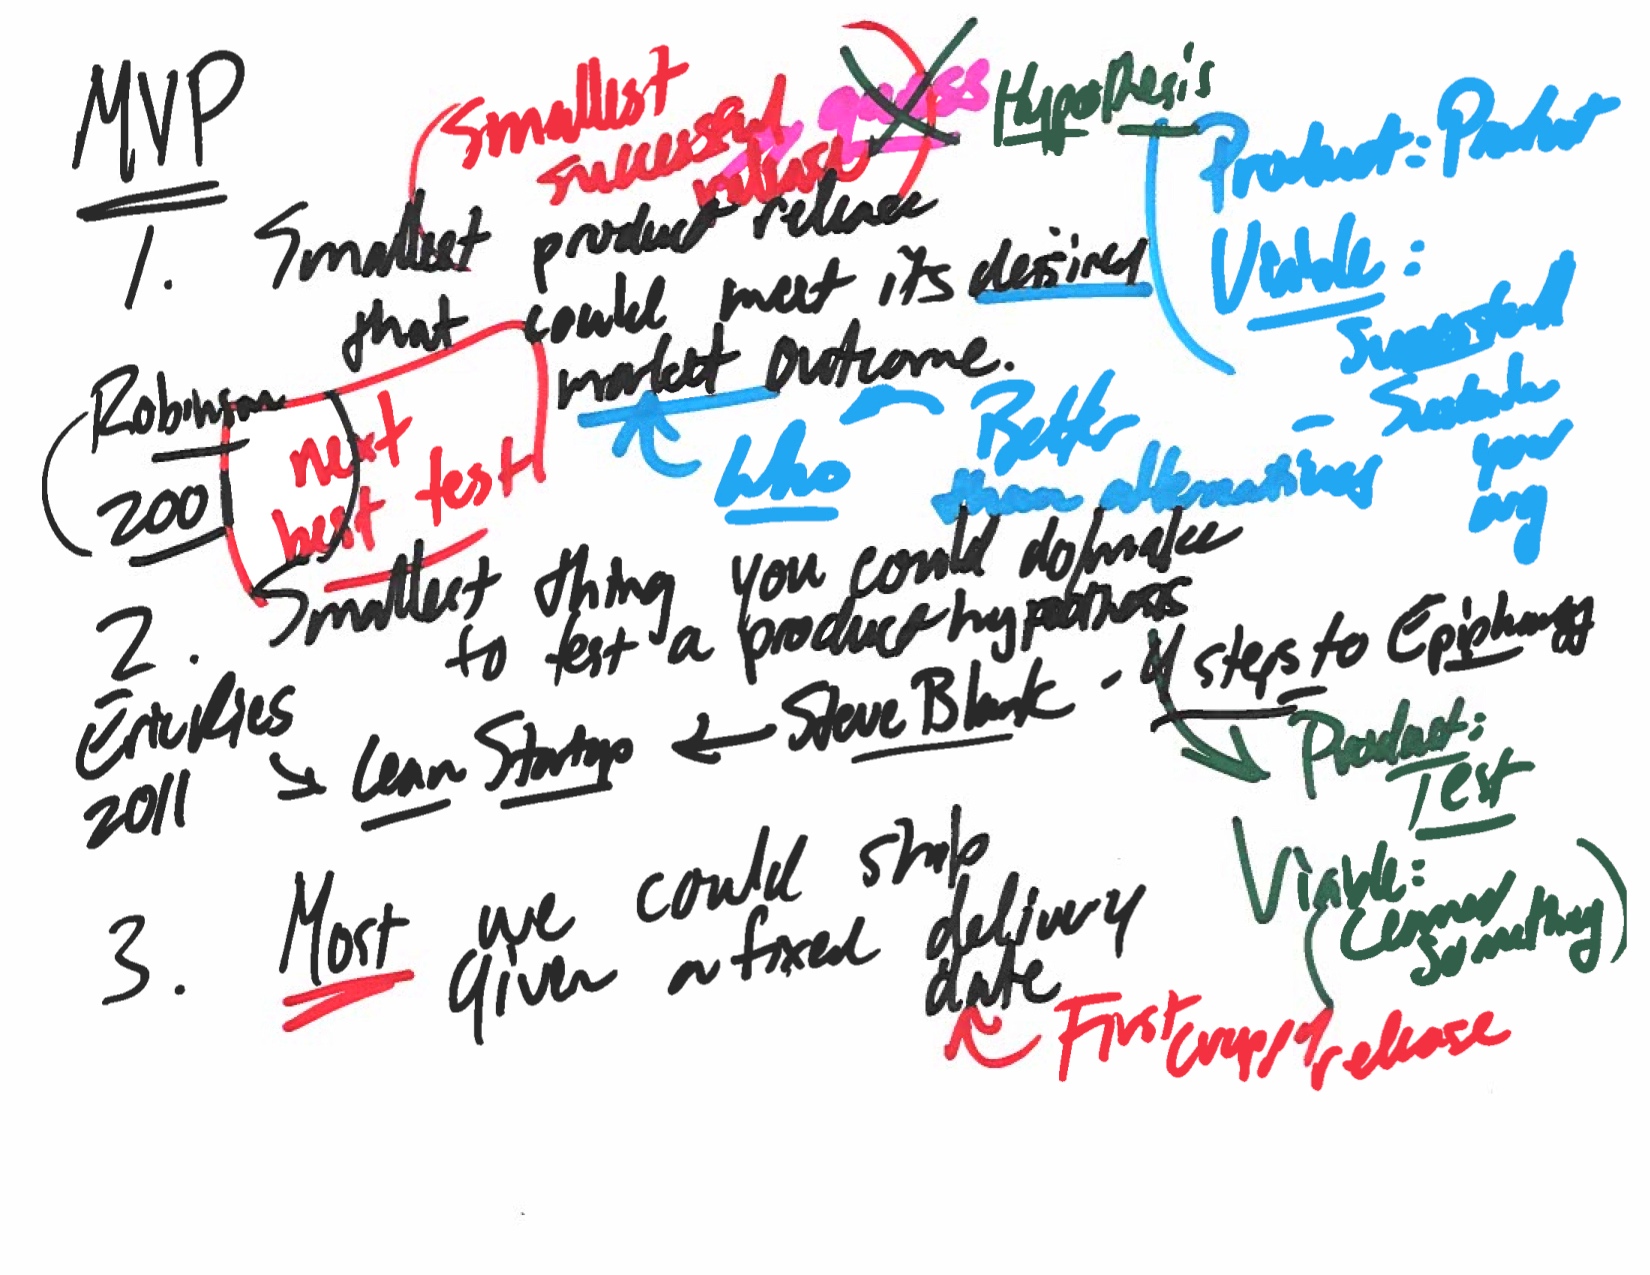 MVP
Smallest
successful
release
guess
Hypothesis
Product: Product
Viable:
successful
your
org
1. Smallest product release
that could meet its desired
market outcome.
Robinson
200
next
best test
Who
Better
than alternatives
2. Smallest thing you could do/make
to test a product hypothesis
Eric Ries
2011
Lean Startup ← Steve Blank - 4 steps to Epiphany
Product:
Test
Viable:
Learned
Something
3. Most we could ship
given a fixed delivery
date
First crappy release